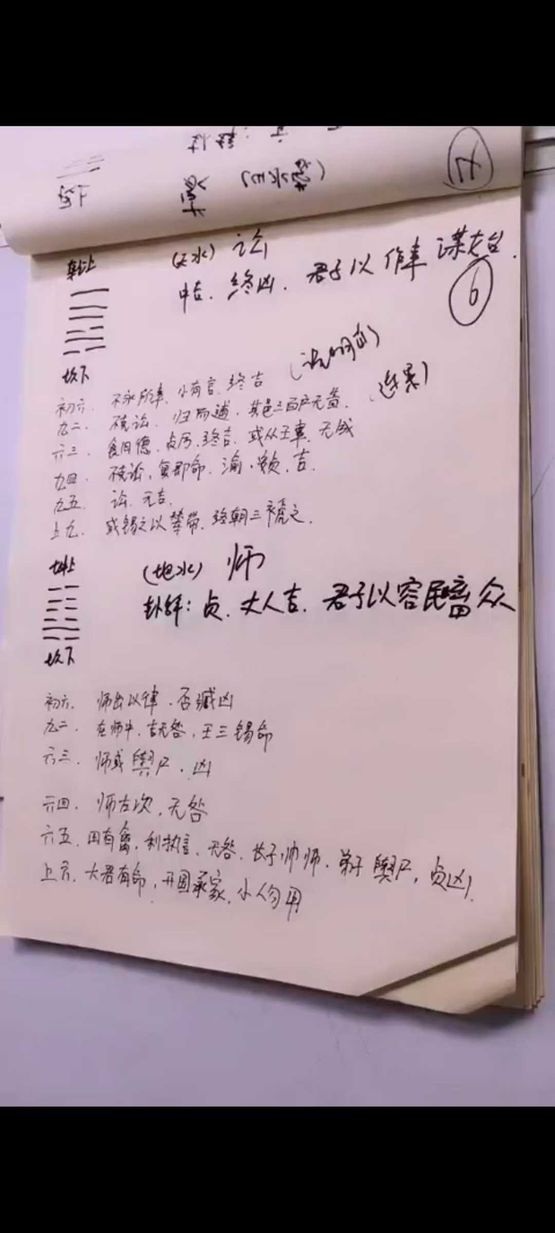 乾上 (天水) 讼
中吉、终凶、君子以作事谋
⑥
坎下
初六、不永所事、小有言、终吉
九二、不克讼、归而逋、其邑三百户无眚、
六三、食旧德、贞厉、终吉、或从王事、无成
九四、不克讼、复即命、渝、贞、吉、
九五、讼、元吉、
上九、或锡之以鞶带、终朝三褫之、
坤上 (地水) 师
卦辞：贞、丈人吉、君子以容民畜众
坎下
初六、师出以律、否臧凶
九二、在师中、吉无咎、王三锡命
六三、师或舆尸、凶
六四、师左次、无咎
六五、田有禽、利执言、无咎、长子帅师、弟子舆尸、贞凶、
上六、大君有命、开国承家、小人勿用